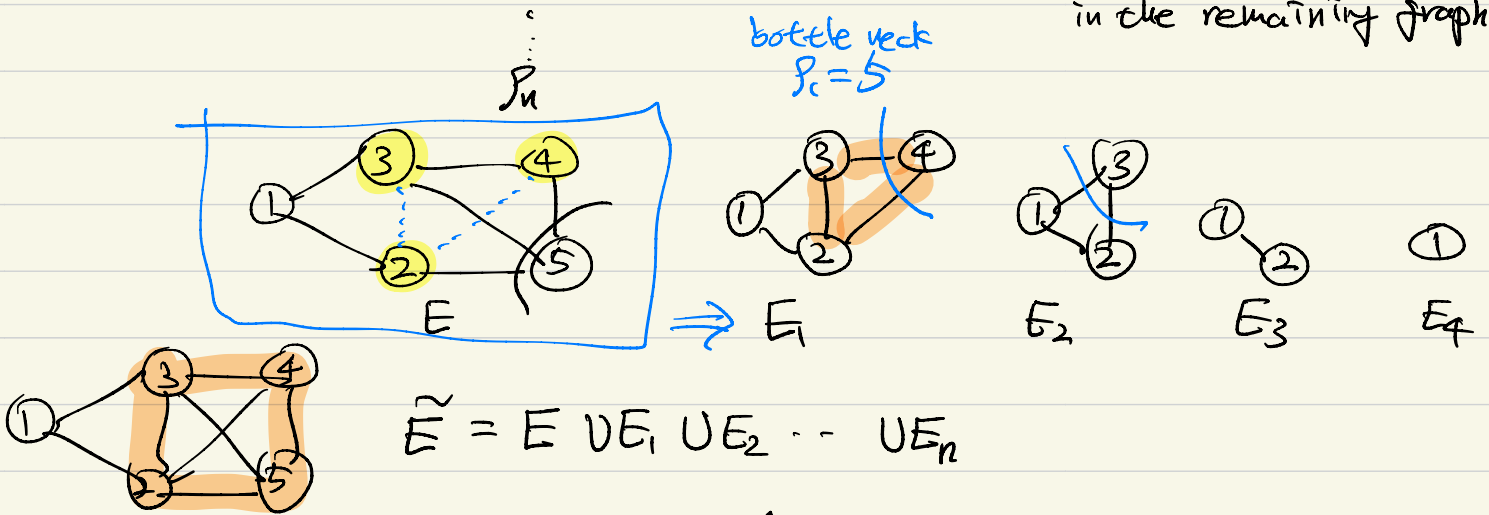 in the remaining graph
ρₙ
bottle neck
ρ_c = 5
1 3 4 2 5
E
⇒
1 3 4 2
E₁
1 3 2
E₂
1 2
E₃
1
E₄
1 3 4 2 5
Ẽ = E ∪ E₁ ∪ E₂ ·· ∪ Eₙ